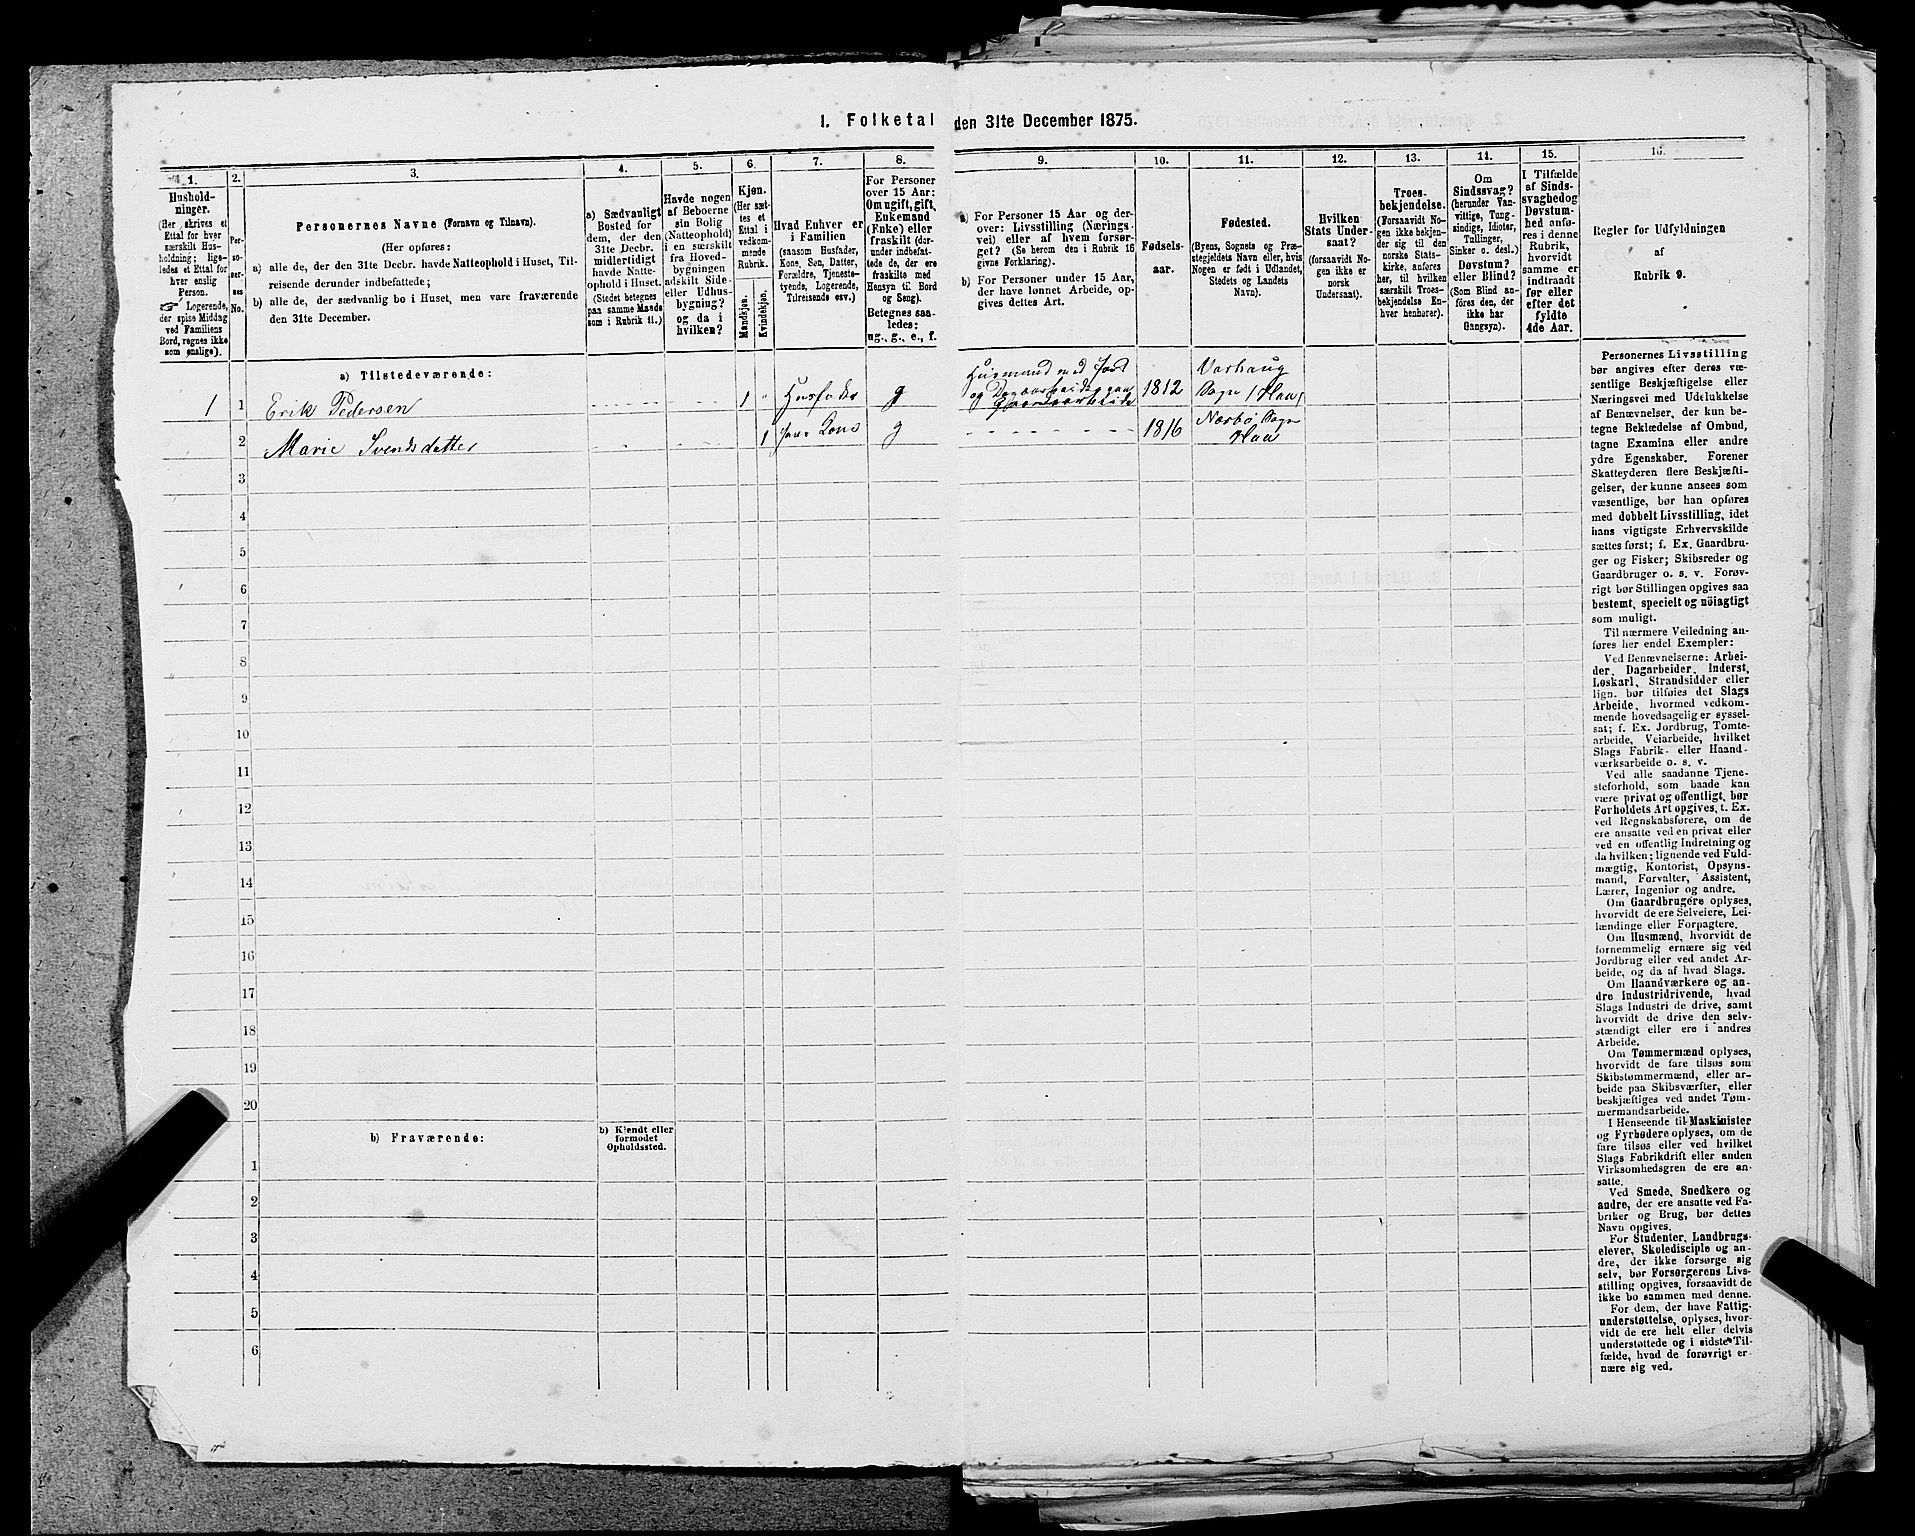 1. Folketal den 31te December 1875.
1. 2. 3. 4. 5. 6. 7. 8. 9. 10. 11. 12. 13. 14. 15. 16.
Hushold-
ninger.
(Her skrives et
Ettal for hver
særskilt Hus-
holdning; lige-
ledes et Ettal for
hver enslig
Person.
☞ Logerende,
der spise Middag
ved Familiens
Bord, regnes ikke
som enslige).
Per-
so-
ner-
nes
No.
Personernes Navne (Fornavn og Tilnavn).
(Her opføres:
a) alle de, der den 31te Decbr. havde Natteophold i Huset, Til-
reisende derunder indbefattede;
b) alle de, der sædvanlig bo i Huset, men vare fraværende
den 31te December.
a) Sædvanligt
Bosted for
dem, der den
31te Decbr.
midlertidigt
havde Natte-
ophold i Huset.
(Stedet betegnes
paa samme Maade
som i Rubrik 11.)
Havde nogen
af Beboerne
sin Bolig
(Natteophold)
i en særskilt
fra Hoved-
bygningen
adskilt Side-
eller Udhus-
bygning?
og da i
hvilken?
Kjøn.
(Her sæt-
tes et
Ettal i
vedkom-
mende
Rubrik.
Mandkjøn.
Kvindekjøn.
Hvad Enhver er
i Familien
(saasom Husfader,
Kone, Søn, Datter,
Forældre, Tjeneste-
tyende, Logerende,
Tilreisende osv.)
For Personer
over 15 Aar:
Om ugift, gift,
Enkemand
(Enke) eller
fraskilt (der-
under indbefat-
tede de, der ere
fraskilte med
Hensyn til Bord
og Seng).
Betegnes saa-
ledes:
ug., g., e., f.
a) For Personer 15 Aar og der-
over: Livsstilling (Nærings-
vei) eller af hvem forsør-
get? (Se herom den i Rubrik 16
givne Forklaring).
b) For Personer under 15 Aar,
der have lønnet Arbeide, op-
gives dettes Art.
Fødsels-
aar.
Fødested.
(Byens, Sognets og Præ-
stegjeldets Navn eller, hvis
Nogen er født i Udlandet,
Stedets og Landets
Navn).
Hvilken
Stats Under-
saat?
(forsaavidt No-
gen ikke er
norsk
Undersaat).
Troes-
bekjendelse.
(Forsaavidt No-
gen ikke bekjen-
der sig til den
norske Stats-
kirke, anføres
her, til hvilken
særskilt Troes-
bekjendelse En-
hver henhører).
Om
Sindssvag?
(herunder Van-
vittige, Tung-
sindige, Idioter,
Tullinger,
Sinker o. desl.)
Døvstum?
eller Blind?
(Som Blind an-
føres den, der
ikke har
Gangsyn).
I Tilfælde
af Sinds-
svaghed og
Døvstum-
hed anfø-
res i denne
Rubrik,
hvorvidt
samme er
indtraadt
før eller
efter det
fyldte
4de Aar.
Regler for Udfyldningen
af
Rubrik 9.
a) Tilstedeværende:
1 1 Erik Pedersen 1 " Husfader g Husmand med Jord og Dagarbeide 1812 Varhaug Sogn / Haa /
2 Marie Svendsdatter 1 Kone g 1816 Nærbø Sogn Haa
3
4
5
6
7
8
9
10
11
12
13
14
15
16
17
18
19
20
b) Fraværende:
b) Kjendt eller
formodet
Opholdssted.
1
2
3
4
5
6
Personernes Livsstilling
bør angives efter deres væ-
sentlige Beskjæftigelse eller
Næringsvei med Udelukkelse
af Benævnelser, der kun be-
tegne Beklædelse af Ombud,
tagne Examina eller andre
ydre Egenskaber. Forener
Skatteyderen flere Beskjæfti-
gelser, der kunne ansees som
væsentlige, bør han opføres
med dobbelt Livsstilling, idet
hans vigtigste Erhvervskilde
sættes først; f. Ex. Gaardbru-
ger og Fisker; Skibsreder og
Gaardbruger o. s. v. Forøv-
rigt bør Stillingen opgives saa
bestemt, specielt og nöiagtigt
som muligt.
Til nærmere Veiledning an-
føres her endel Exempler:
Ved Benævnelserne: Arbei-
der, Dagarbeider, Inderst,
Løskarl, Strandsidder eller
lign. bør tilføies det Slags
Arbeide, hvormed vedkom-
mende hovedsagelig er syssel-
sat; f. Ex. Jordbrug, Tomte-
arbeide, Veiarbeide, hvilket
Slags Fabrik- eller Haand-
værksarbeide o. s. v.
Ved alle saadanne Tjene-
steforhold, som baade kan
være privat og offentligt, bør
Forholdets Art opgives, t. Ex.
ved Regnskabsførere, om de
ere ansatte ved en privat eller
ved en offentlig Indretning og
da hvilken; lignende ved Fuld-
mægtig, Kontorist, Opsyns-
mand, Forvalter, Assistent,
Lærer, Ingeniør og andre.
Om Gaardbrugere oplyses,
hvorvidt de ere Selveiere, Lei-
lændinge eller Forpagtere.
Om Husmænd, hvorvidt de
fornemmelig ernære sig ved
Jordbrug eller ved andet Ar-
beide, og da af hvad Slags.
Om Haandværkere og an-
dre Industridrivende, hvad
Slags Industri de drive, samt
hvorvidt de drive den selv-
stændigt eller ere i andres
Arbeide.
Om Tømmermænd oplyses,
hvorvidt de fare tilsøs som
Skibstømmermænd, eller ar-
beide paa Skibsværfter, eller
beskjæftiges ved andet Tøm-
mermandsarbeide.
I Henseende til Maskinister
og Fyrbødere oplyses, om de
fare tilsøs eller ved hvilket
Slags Fabrikdrift eller anden
Virksomhedsgren de ere an-
satte.
Ved Smede, Snedkere og
andre, der ere ansatte ved Fa-
briker og Brug, bør dettes
Navn opgives.
For Studenter, Landbrugs-
elever, Skoledisciple og an-
dre, der ikke forsørge sig
selv, bør Forsørgerens Livs-
stilling opgives, forsaavidt de
ikke bo sammen med denne.
For dem, der have Fattig-
understøttelse, oplyses, hvor-
vidt de ere helt eller delvis
understøttede og i sidste Til-
fælde, hvad de forøvrigt er-
nære sig ved.